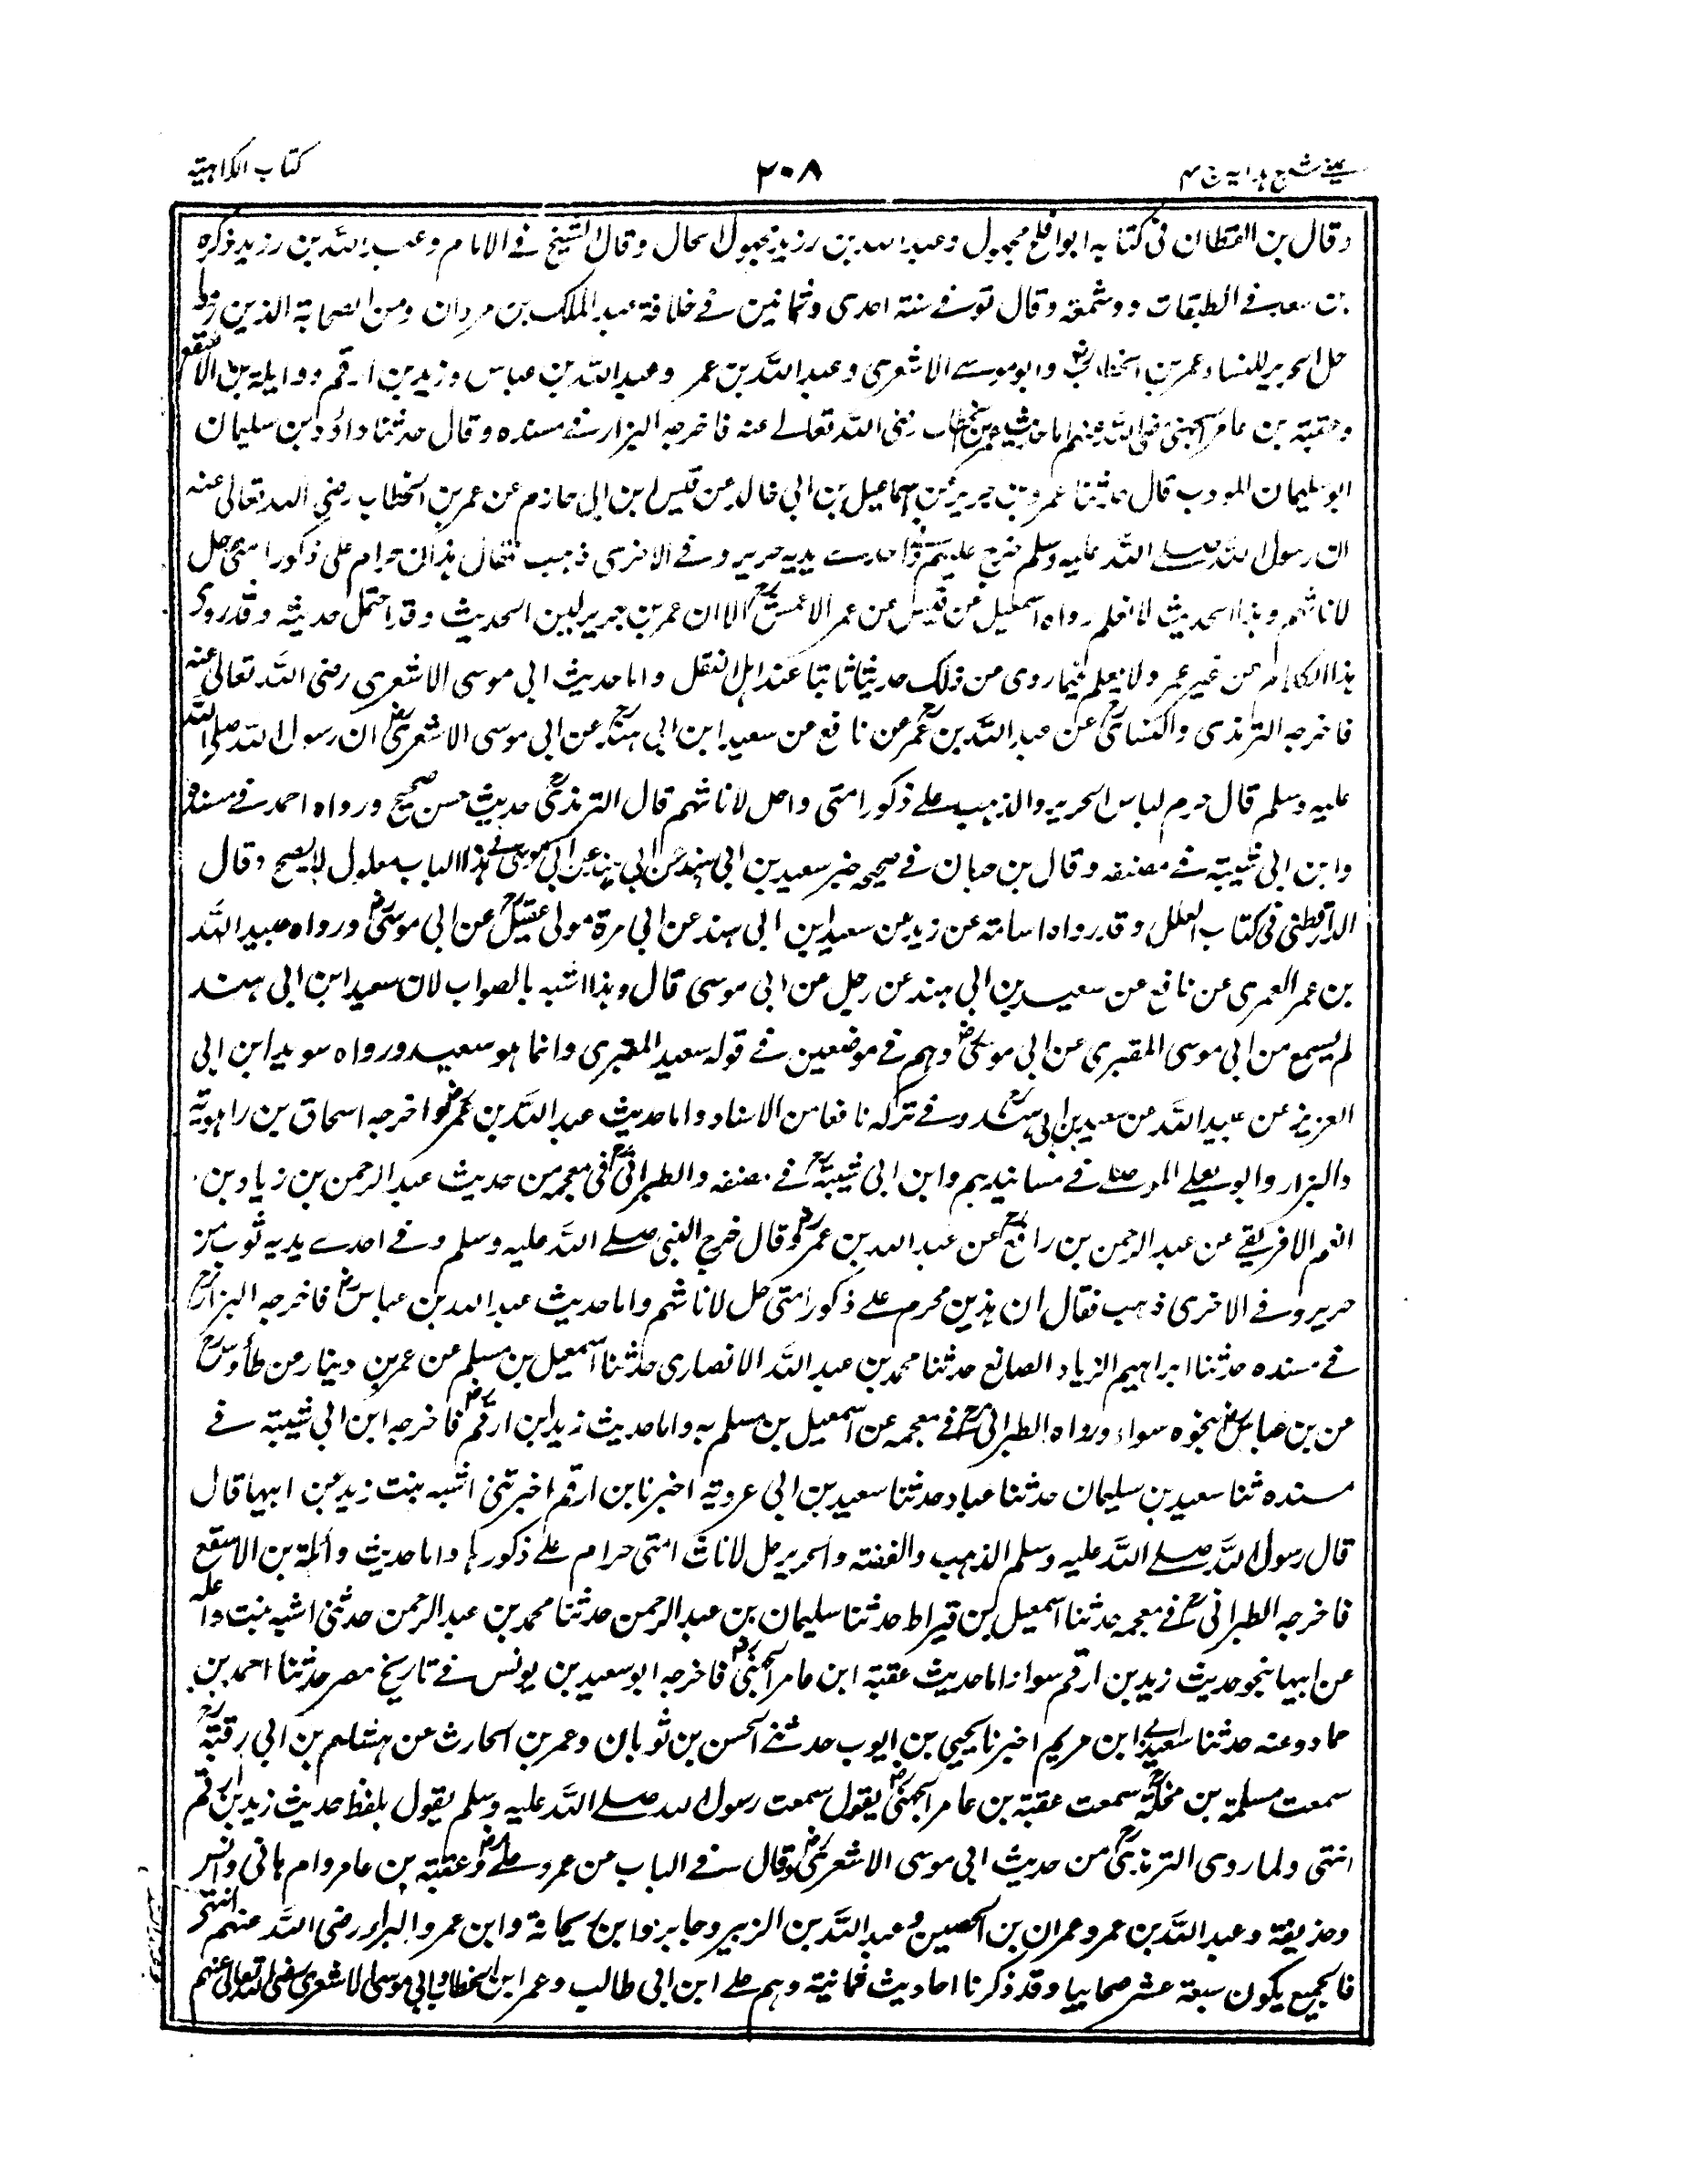 عینی شرح ہدایہ ج ۴
۲۰۸
کتاب الکراہیة
وقال بن القطان فی کتابه ابو افلح مجهول وعبد الله بن رزیر مجهول الحال وقال الشیخ فے الامام وعبد اللہ بن رزیر ذکره
بن سعد فے الطبقات ووثقه وقال توفے سنة احدی وثمانین فے خلافة عبد الملک بن مروان ومن الصحابة الذین
حل الحریر للنساء عمر بن الخطاب رض وابو موسے الاشعری وعبد اللہ بن عمر وعبد اللہ بن عباس وزید بن ارقم وواثلة بن الاسقع
وعقبة بن عامر الجهنی رضی اللہ عنهم اما حدیث عمر بن الخطاب رضی اللہ تعالے عنه فاخرجه البزار فے مسنده وقال حدثنا داؤد بن سلیمان
ابو سلیمان المودب قال حدثنا عمرو بن جریر عن اسماعیل بن ابی خالد عن قیس ابن ابی حازم عن عمر بن الخطاب رضی الله تعالی عنه
ان رسول اللہ صلے اللہ علیه وسلم خرج علیهم وفے احدے یدیه حریر وفے الاخری ذهب فقال هذان حرام علی ذکور امتی حل
لاناثهم وهذا الحدیث لا نعلم رواه اسمعیل عن قیس عن عمر الا عمرو بن جریر لین الحدیث وقد احتمل حدیثه وقد روی
هذا الکلام عن غیر عمر ولا نعلم فیما روی من ذلک حدیثا ثابتا عند اهل النقل واما حدیث ابی موسی الاشعری رضی اللہ تعالی عنه
فاخرجه الترمذی والنسائی عن عبد اللہ بن عمر عن نافع عن سعید ابن ابی هند عن ابی موسی الاشعری ان رسول اللہ صلی اللہ
علیه وسلم قال حرم لباس الحریر والذهب علے ذکور امتی واحل لاناثهم قال الترمذی حدیث حسن صحیح ورواه احمد فے مسنده
وابن ابی شیبة فے مصنفه وقال بن حبان فے صحیحه خبر سعید بن ابی هند عن ابی موسی فے هذا الباب معلول لا یصح وقال
الدارقطنی فی کتاب العلل وقد رواه اسامة عن زید عن سعید ابن ابی هند عن ابی مرة مولی عقیل عن ابی موسی ورواه عبید اللہ
بن عمر العمری عن نافع عن سعید بن ابی هند عن رجل عن ابی موسی قال وهذا اشبه بالصواب لان سعید ابن ابی هند
لم یسمع من ابی موسی المقبری عن ابی موسی وهم فے موضعین فے قوله سعید المقبری وانما هو سعید ورواه سوید ابن ابی
العزیز عن عبید اللہ عن سعید بن ابی هند وفے ترکه نافعا من الاسناد واما حدیث عبد اللہ بن عمر فاخرجه اسحاق بن راهویة
والبزار وابو یعلے الموصلے فے مسانیدهم وابن ابی شیبة فے مصنفه والطبرانی فی معجمه من حدیث عبد الرحمن بن زیاد بن
انعم الافریقے عن عبد الرحمن بن رافع عن عبد الله بن عمرو قال خرج النبی صلے اللہ علیه وسلم وفے احدے یدیه ثوب من
حریر وفے الاخری ذهب فقال ان هذین محرم علے ذکور امتی حل لاناثهم واما حدیث عبد الله بن عباس فاخرجه البزار
فے مسنده حدثنا ابراهیم الزیاد الصائغ حدثنا محمد بن عبد اللہ الانصاری حدثنا اسمعیل بن مسلم عن عمر بن دینار عن طاؤس
عن بن عباس بنحوه سواء ورواه الطبرانی فے معجمه عن اسمعیل بن مسلم به واما حدیث زید ابن ارقم فاخرجه ابن ابی شیبة فے
مسنده ثنا سعید بن سلیمان حدثنا عباد حدثنا سعید بن ابی عروبة اخبرنا بن ارقم اخبرتنی انیسه بنت زید عن ابیها قال
قال رسول اللہ صلے اللہ علیه وسلم الذهب والفضة والحریر حل لاناث امتی حرام علے ذکورها واما حدیث واثلة بن الاسقع
فاخرجه الطبرانی فے معجمه حدثنا اسمعیل بن قیراط حدثنا سلیمان بن عبد الرحمن حدثنا محمد بن عبد الرحمن حدثتنی اشیه بنت واثلة
عن ابیها بنحو حدیث زید بن ارقم سواء اما حدیث عقبة ابن عامر الجهنی فاخرجه ابو سعید بن یونس فے تاریخ مصر حدثنا احمد بن
حماد وعنه حدثنا سعید ابن ابی مریم اخبرنا یحیی بن ایوب حدثنے الحسن بن ثوبان وعمر بن الحارث عن هشام بن ابی رقیة
سمعت مسلمة بن مخلد سمعت عقبة بن عامر الجهنی یقول سمعت رسول الله صلے اللہ علیه وسلم یقول بلفظ حدیث زید بن ارقم
انتهی ولما روی الترمذی من حدیث ابی موسی الاشعری قال وفے الباب عن عمر وعلے وعقبة بن عامر وام هانی وانس
وحذیفة وعبد اللہ بن عمرو وعمران بن الحصین وعبد اللہ بن الزبیر وجابر وابن ریحانة وابن عمر والبراء رضی اللہ عنهم انتهی
فالجمیع یکون سبعة عشر صحابیا وقد ذکرنا احادیث ثمانیة وهم علے ابن ابی طالب وعمر ابن الخطاب وابی موسی الاشعری رضی اللہ تعالی عنهم